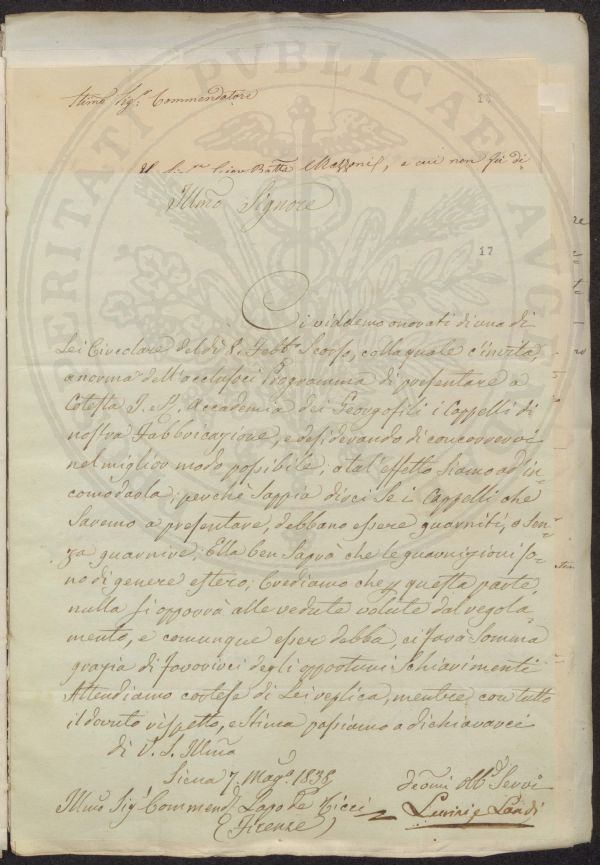 Stimo Sig.r Commendatore
18
Il Sig.r Giov Batta Mazzoni, a cui non fù di
Illmo Signore
17
Ci viddemo onorati di una di
Lei Circolare del dì 8. Febb.o Scorso, colla quale c'invita,
a norma dell'acclusoci Programma di presentare a
Cotesta I. e R. Accademia dei Georgofili i Cappelli di
nostra Fabbricazione, e desiderando di concorrervi
nel miglior modo possibile, a tal'effetto siamo ad in=
comodarla, perchè sappia dirci se i Cappelli che
saremo a presentare, debbano essere guarniti, o sen=
za guarnire; Ella ben saprà che le guarnizioni so=
no di genere estero, Crediamo che p questa parte
nulla si opporrà alle vedute volute dal regola
mento, e comunque esser debba, ci farà somma
grazia di favorirci degli opportuni Schiarimenti
Attendiamo cortese di Lei replica, mentre con tutto
il dovuto rispetto, e Stima passiamo a dichiararci
di V. S. Illma
Siena 7. Mag.o 1838
devmi Obb.i Servi
Illmo Sig.r Commend.r Lapo de Ricci
(Firenze)
Landi